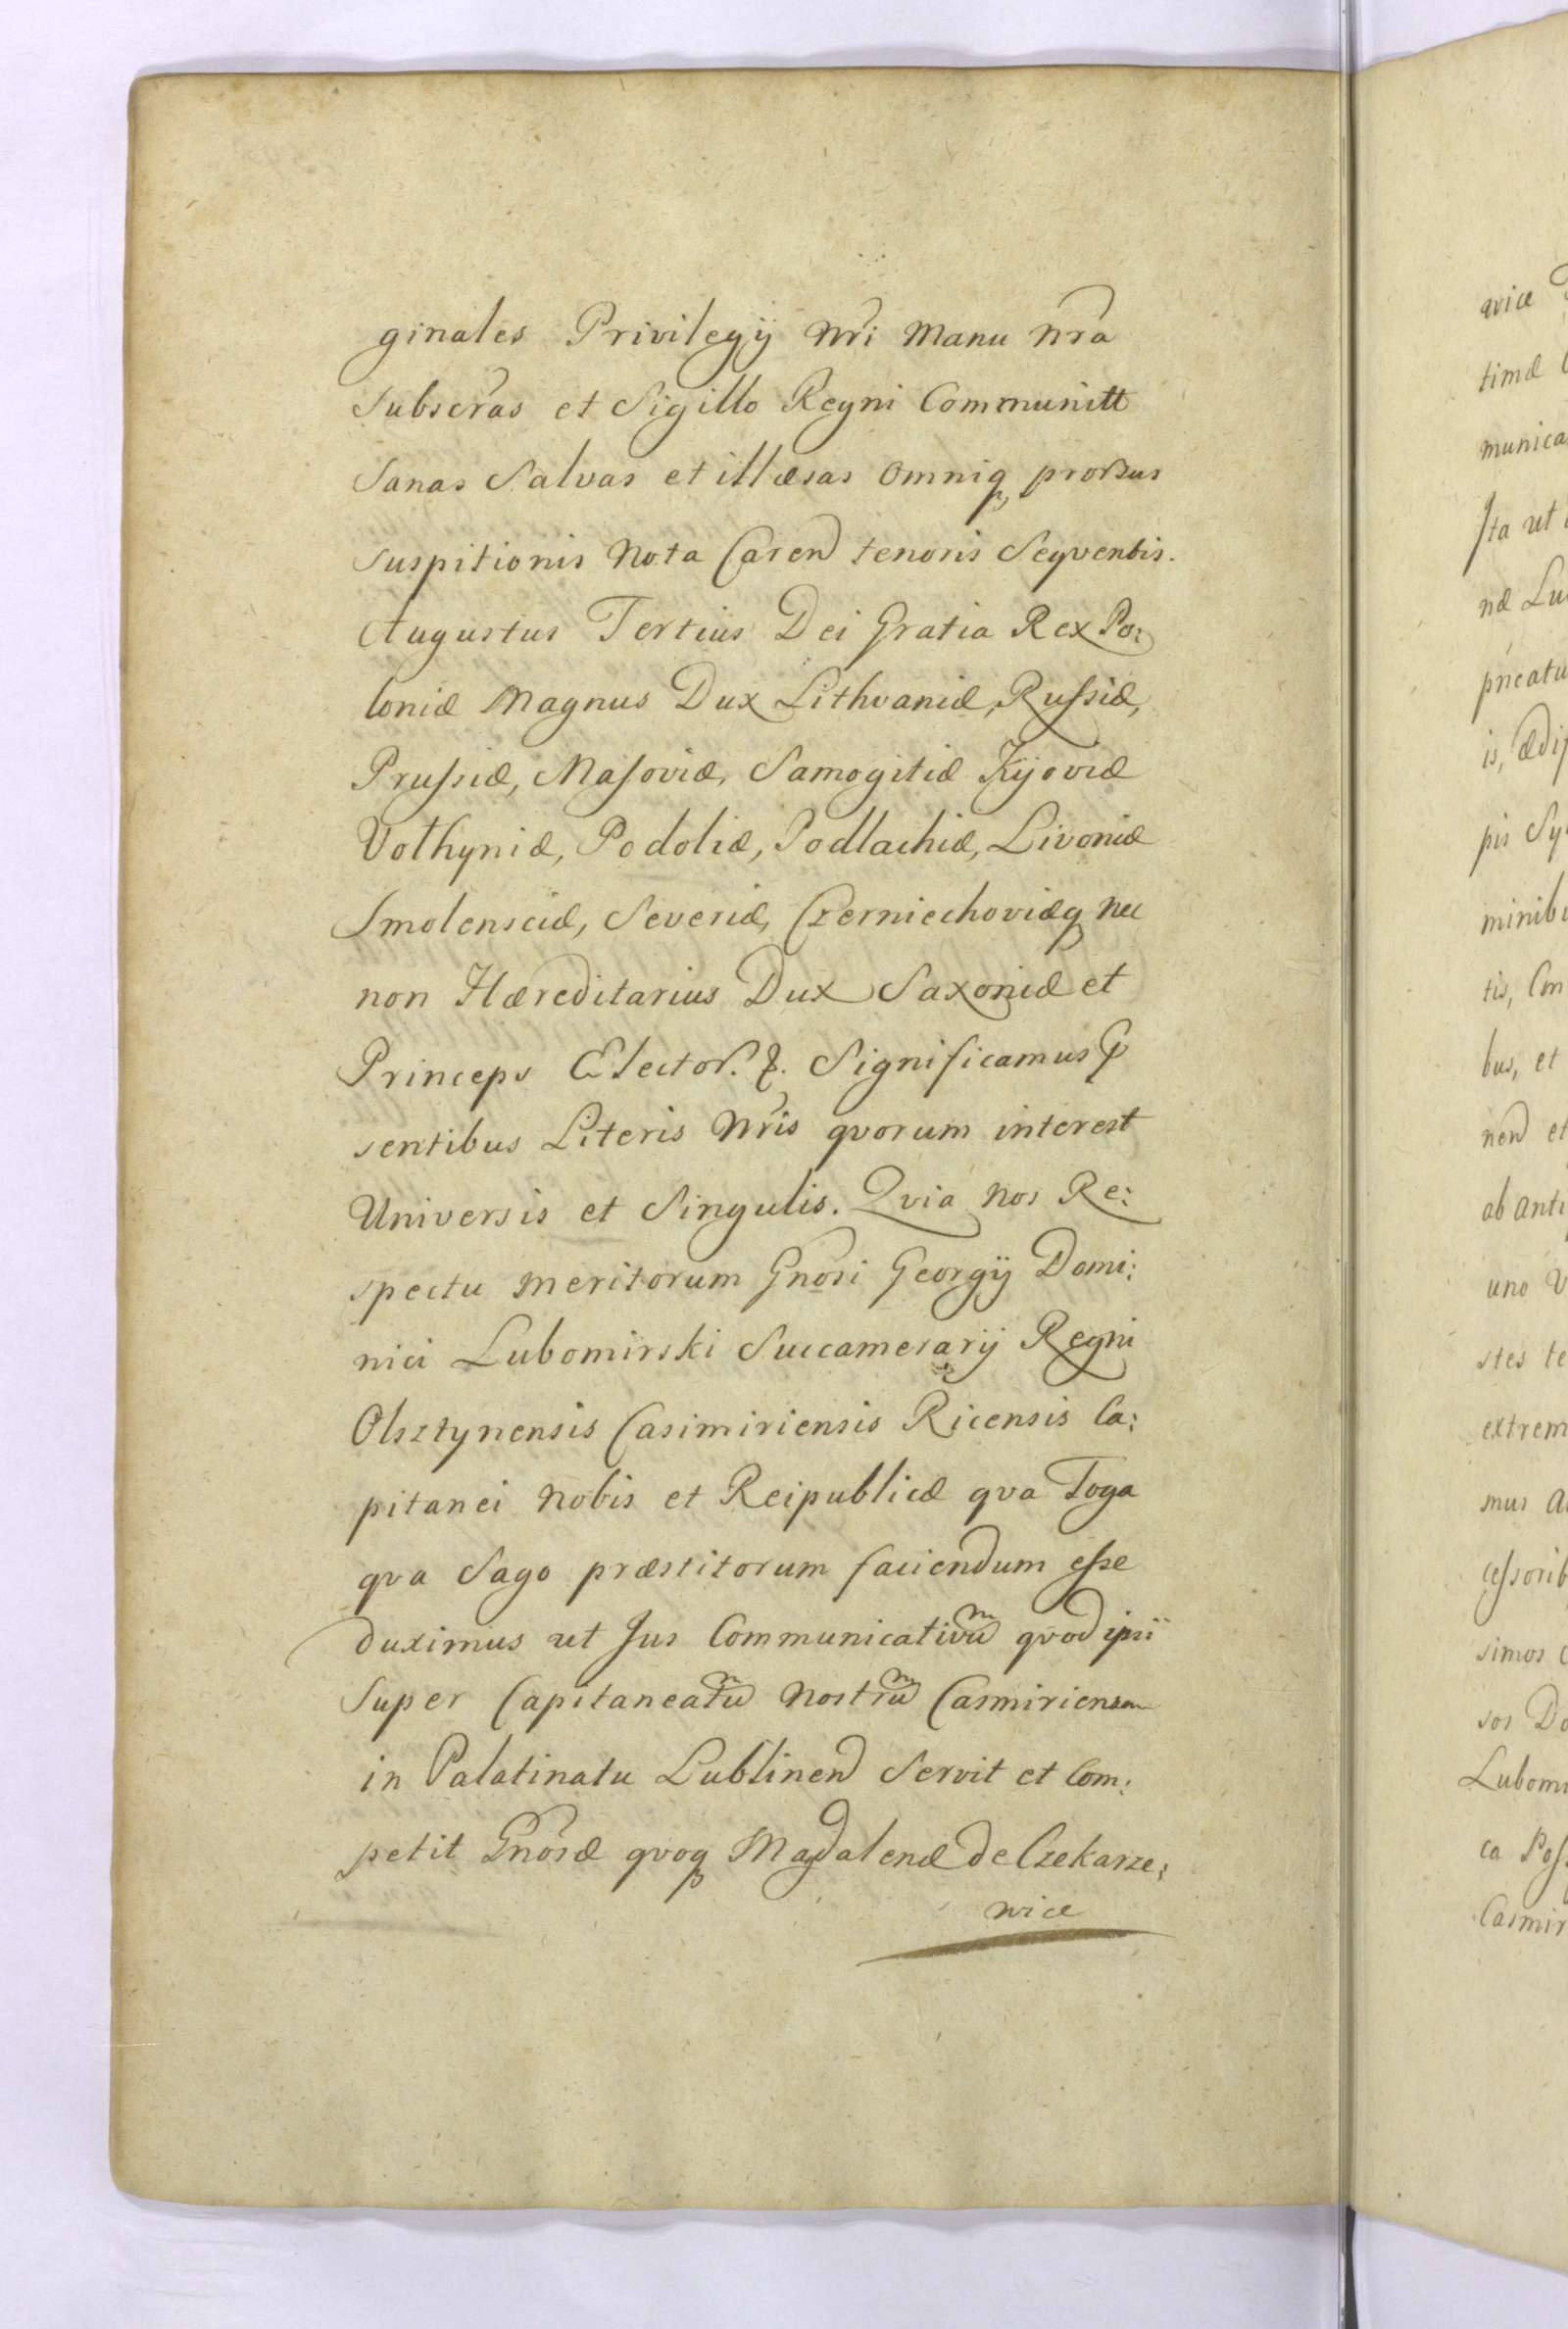 ginales Privilegÿ Nr̃i Manu Nr̃a
Subscr̃as et Sigillo Regni Communitt
Sanas Salvas et illæsas omniq, prorsus
suspitionis Nota Caren̄ tenoris Seqventis.
Augustus Tertius Dei Gratia Rex Po:
loniæ Magnus Dux Lithvaniæ, Russiæ,
Prussiæ, Masoviæ, Samogitiæ Kijoviæ
Volhyniæ, Podoliæ, Podlachiæ, Livoniæ
Smolensciæ, Severiæ, Czerniechoviæq nec
non Hæreditarius Dux Saxoniæ et
Princeps Elector. &. Significamus P
sentibus Literis Nr̃is qvorum interest
Universis et Singulis. Qvia Nos Re:
spectu meritorum Gnõsi Georgÿ Domi:
nici Lubomirski Succamerarÿ Regni
Olsztynensis Casimiriensis Ricensis Ca:
pitanei Nobis et Reipublicæ qva Toga
qva Sago præstitorum faciendum esse
duximus ut Jus Communicativũ qvod ipsi
Super Capitaneatũ Nostrũ Casmiriensem
in Palatinatu Lublinen̄ Servit et Com:
petit Gnõsæ qvoq Magdalenæ de Czekarze:
wice
avice
timæ
munica
Ita ut
næ Lu
pncatu
is, ædif
pis Sy
minibu
tis, Cm
bus, et
nen̄ et
ab anti
uno V
stes te
extrem
mus A
cessorib
simos
sos Do
Lubomi
ca Poss
Casmir